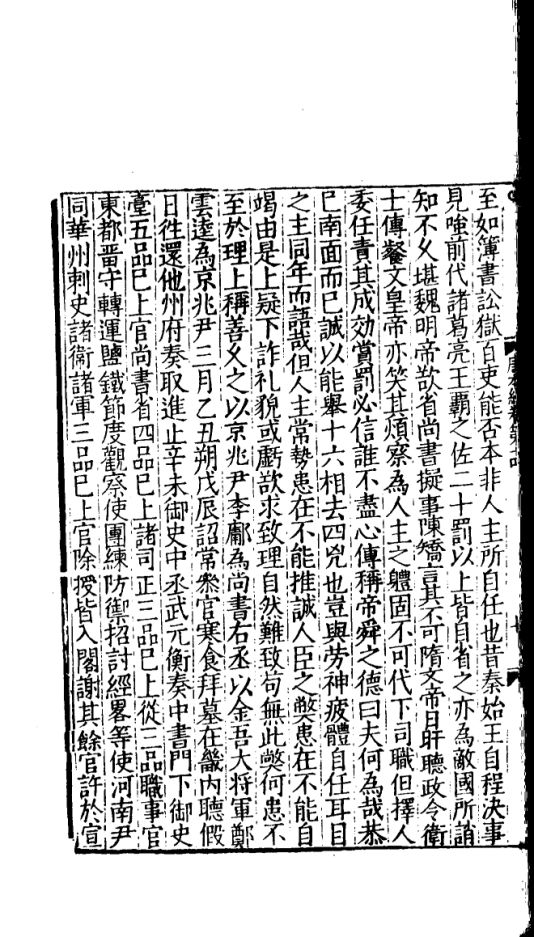 至如簿書訟獄百吏能否本非人主所自任也昔秦始王自程決事
見嗤前代諸葛亮王霸之佐二十罰以上皆自省之亦為敵國所誚
知不久堪魏明帝欲省尚書擬事陳矯言其不可隋文帝日旰聽政令衛
士傳餐文皇帝亦笑其煩察為人主之體固不可代下司職但擇人
委任責其成効賞罰必信誰不盡心傳稱帝舜之德曰夫何為哉恭
巳南面而巳誠以能舉十六相去四兇也豈與劳神疲體自任耳目
之主同年而語哉但人主常勢患在不能推誠人臣之獘患在不能自
竭由是上疑下詐礼貌或虧欲求致理自然難致苟無此獘何患不
至於理上稱善久之以京兆尹李鄘為尚書右丞以金吾大将軍鄭
雲逵為京兆尹三月乙丑朔戊辰詔常叅官寒食拜墓在畿内聽假
日徃還他州府奏取進止辛未御史中丞武元衡奏中書門下御史
臺五品巳上官尚書省四品巳上諸司正三品巳上從三品職事官
東都畱守轉運鹽鐵節度觀察使團練防禦招討經畧等使河南尹
同華州刺史諸衛諸軍三品巳上官除授皆入閤謝其餘官許於宣